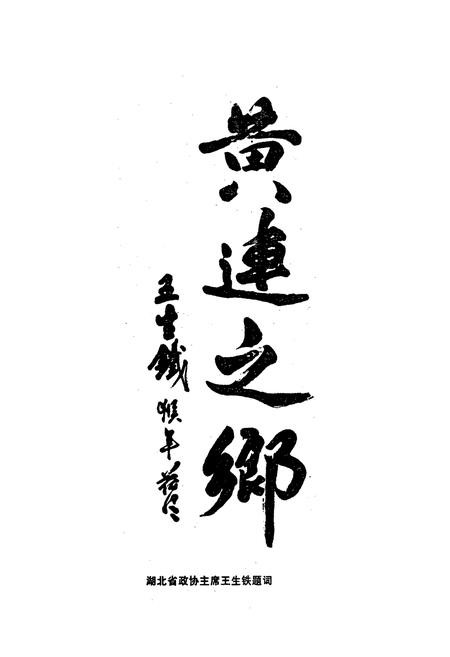 黄連之鄉
王生鐵 猴年荷月
湖北省政协主席王生铁题词